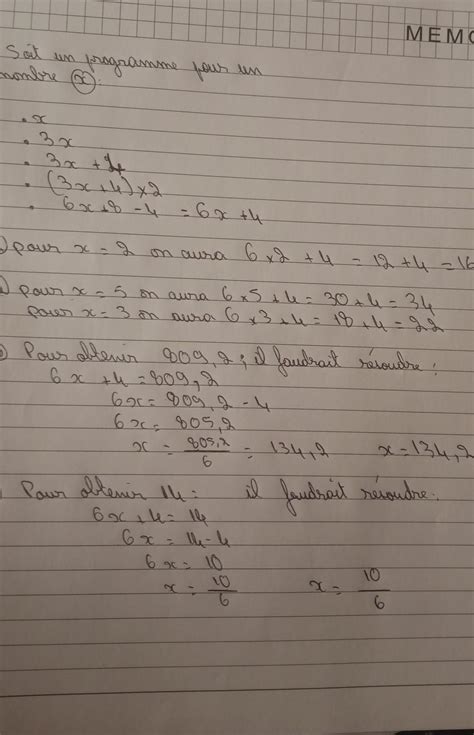 MEMO
Soit un programme pour un
nombre (x):
. x
. 3x
. 3x + 4
. (3x + 4) × 2
. 6x + 8 - 4 = 6x + 4
) pour x = 2 on aura 6 × 2 + 4 = 12 + 4 = 16
) pour x = 5 on aura 6 × 5 + 4 = 30 + 4 = 34
pour x = 3 on aura 6 × 3 + 4 = 18 + 4 = 22
) Pour obtenir 809,2 ; il faudrait résoudre :
6x + 4 = 809,2
6x = 809,2 - 4
6x = 805,2
x = 805,2/6 = 134,2 x = 134,2
Pour obtenir 14 : il faudrait résoudre :
6x + 4 = 14
6x = 14 - 4
6x = 10
x = 10/6 x = 10/6